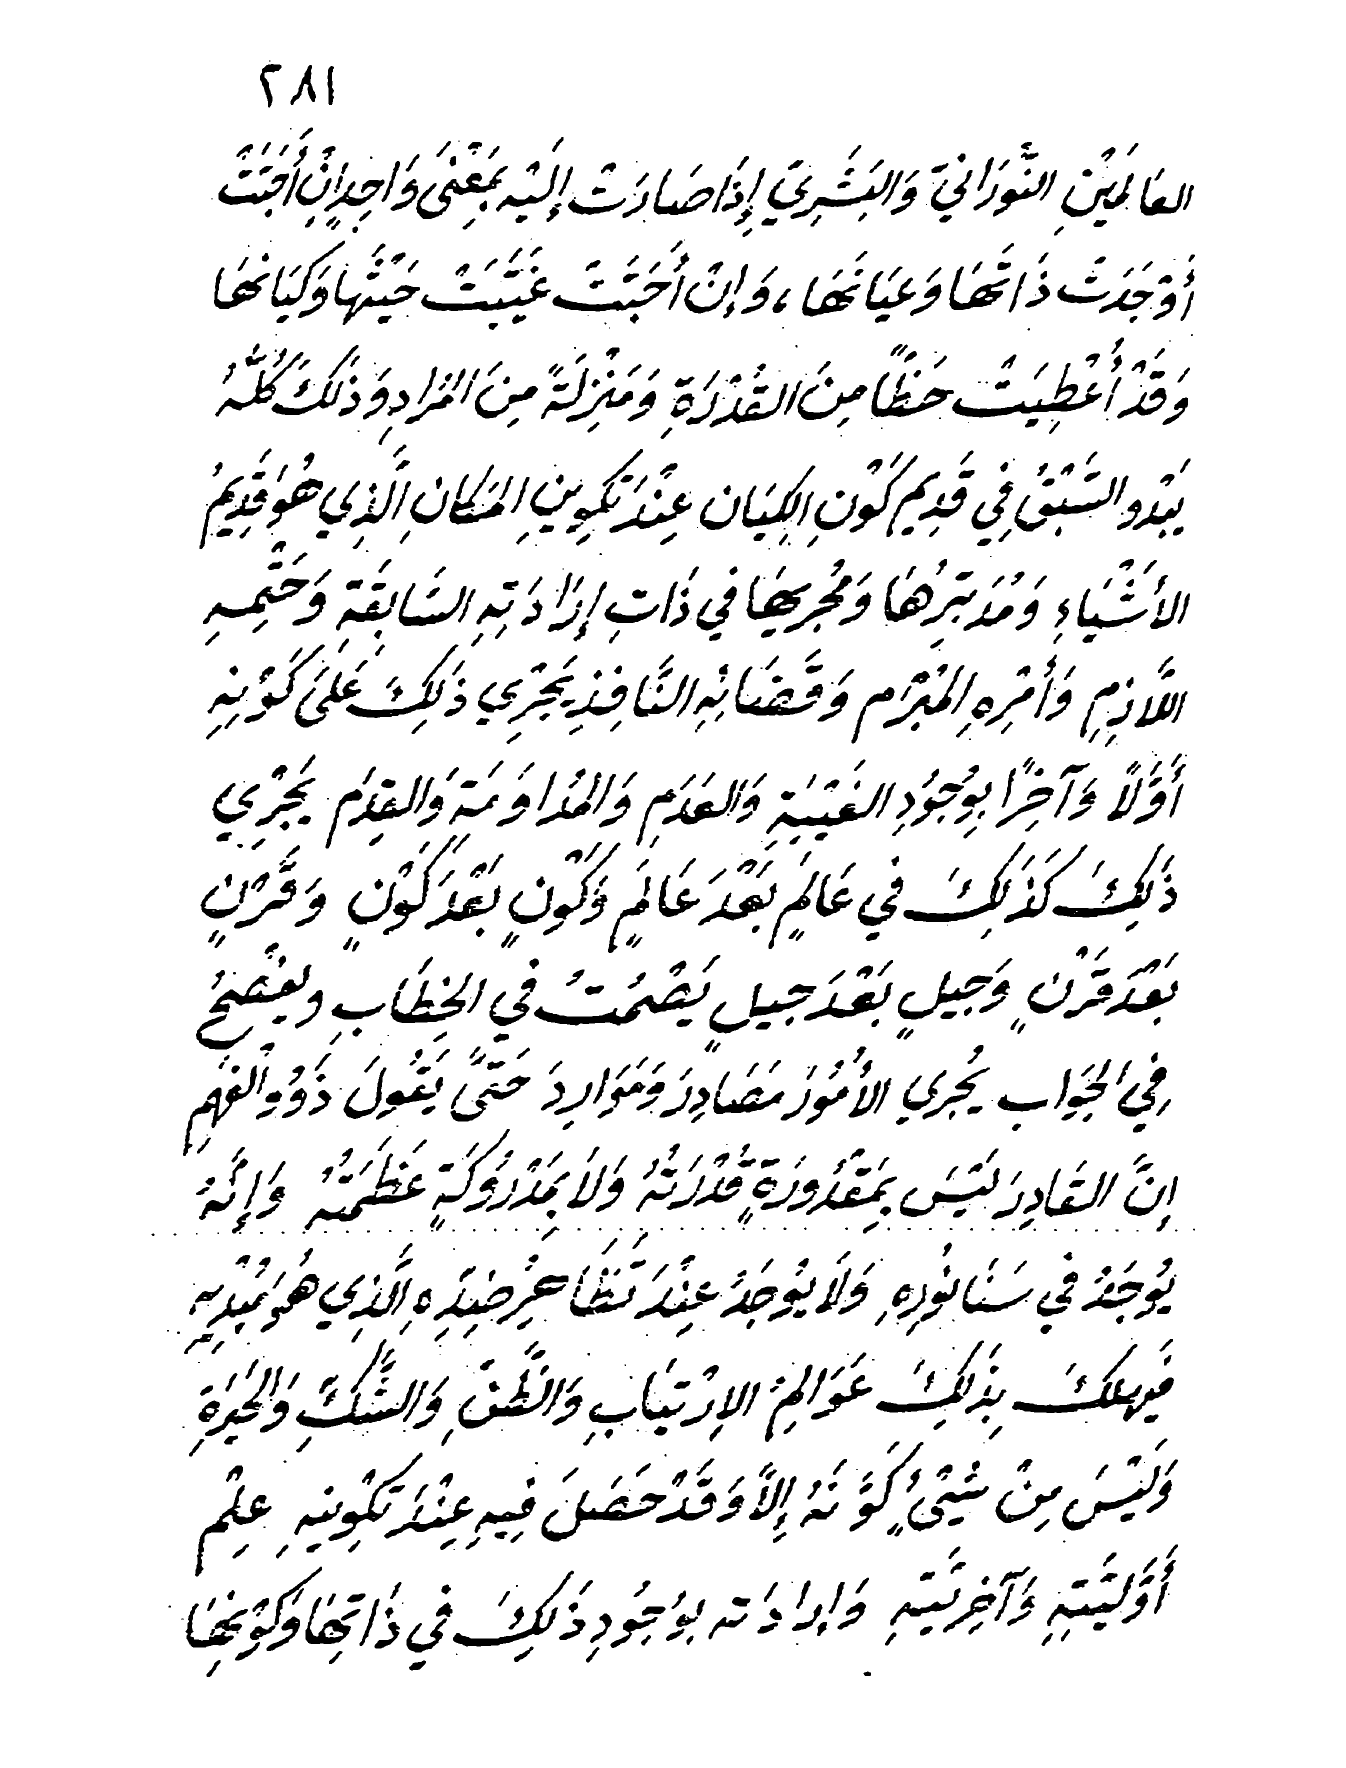 ٢٨١
العَالَمَيْنِ النَّوَرَانيَّ وَالبَشَرِيَّ إِذَا صَارَتْ إِلَيْهِ بِمَعْنَى وَاحِدٍ إِنْ أَحَبَّتْ
أَوْجَدَتْ ذَاتَهَا وَعَيَانَهَا، وَإِنْ أَحَبَّتْ غَيَّبَتْ حَيْثَهَا وَكَيَانَهَا
وَقَدْ أُعْطِيَتْ حَظًّا مِنَ القُدْرَةِ وَمَنْزِلَةً مِنَ المُرَادِ وَذَلَكَ كُلُّهُ
يَبْدُو السَّبْقُ فِي قَدِيمِ كَوْنِ الكِيَانِ عِنْدَ تَكْوِينِ المَكَانِ الَّذِي هُوَ قَدِيمُ
الأَشْيَاءِ وَمُدَبِّرُهَا وَمُجْرِيهَا فِي ذَاتِ إِرَادَتِهِ السَّابِقَةِ وَحَتْمِهِ
اللَّازِمِ وَأَمْرِهِ المُبْرَمِ وَقَضَائِهِ النَّافِذِ يَجْرِي ذَلِكَ عَلَى كَوْنِهِ
أَوَّلًا وَآخِرًا بِوُجُودِ الغَيْبَةِ وَالعَدَمِ وَالمُدَاوَمَةِ وَالقِدَمِ يَجْرِي
ذَلِكَ كَذَلِكَ فِي عَالَمٍ بَعْدَ عَالَمٍ وَكَوْنٍ بَعْدَ كَوْنٍ وَقَرْنٍ
بَعْدَ قَرْنٍ وَجِيلٍ بَعْدَ جِيلٍ يَصْمُتُ فِي الخِطَابِ وَيُفْصِحُ
فِي الجَوَابِ يُجْرِي الأُمُورَ مَصَادِرَ وَمَوَارِدَ حَتَّى يَقُولَ ذَوُو الفَهْمِ
إِنَّ القَادِرَ لَيْسَ بِمَقْدُورَةٍ قُدْرَتُهُ وَلَا بِمَدْرُوكَةٍ عَظَمَتُهُ وَإِنَّهُ
يُوجَدُ فِي سَنَا نُورِهِ وَلَا يُوجَدُ عِنْدَ تَظَاهُرِ ضِدِّهِ الَّذِي هُوَ مُبْدِيهِ
فَيَهْلَكَ بِذَلِكَ عَوَالِمُ الارْتِيَابِ وَالظَّنِّ وَالشَّكِّ وَالحَيْرَةِ
وَلَيْسَ مِنْ شَيْءٍ كَوَّنَهُ إِلَّا وَقَدْ حَصَلَ فِيهِ عِنْدَ تَكْوِينِهِ عِلْمُ
أَوَّلِيَّتِهِ وَآخِرِيَّتِهِ وَإِرَادَتِهِ بِوُجُودِ ذَلِكَ فِي ذَاتِهَا وَكَوْنِهَا